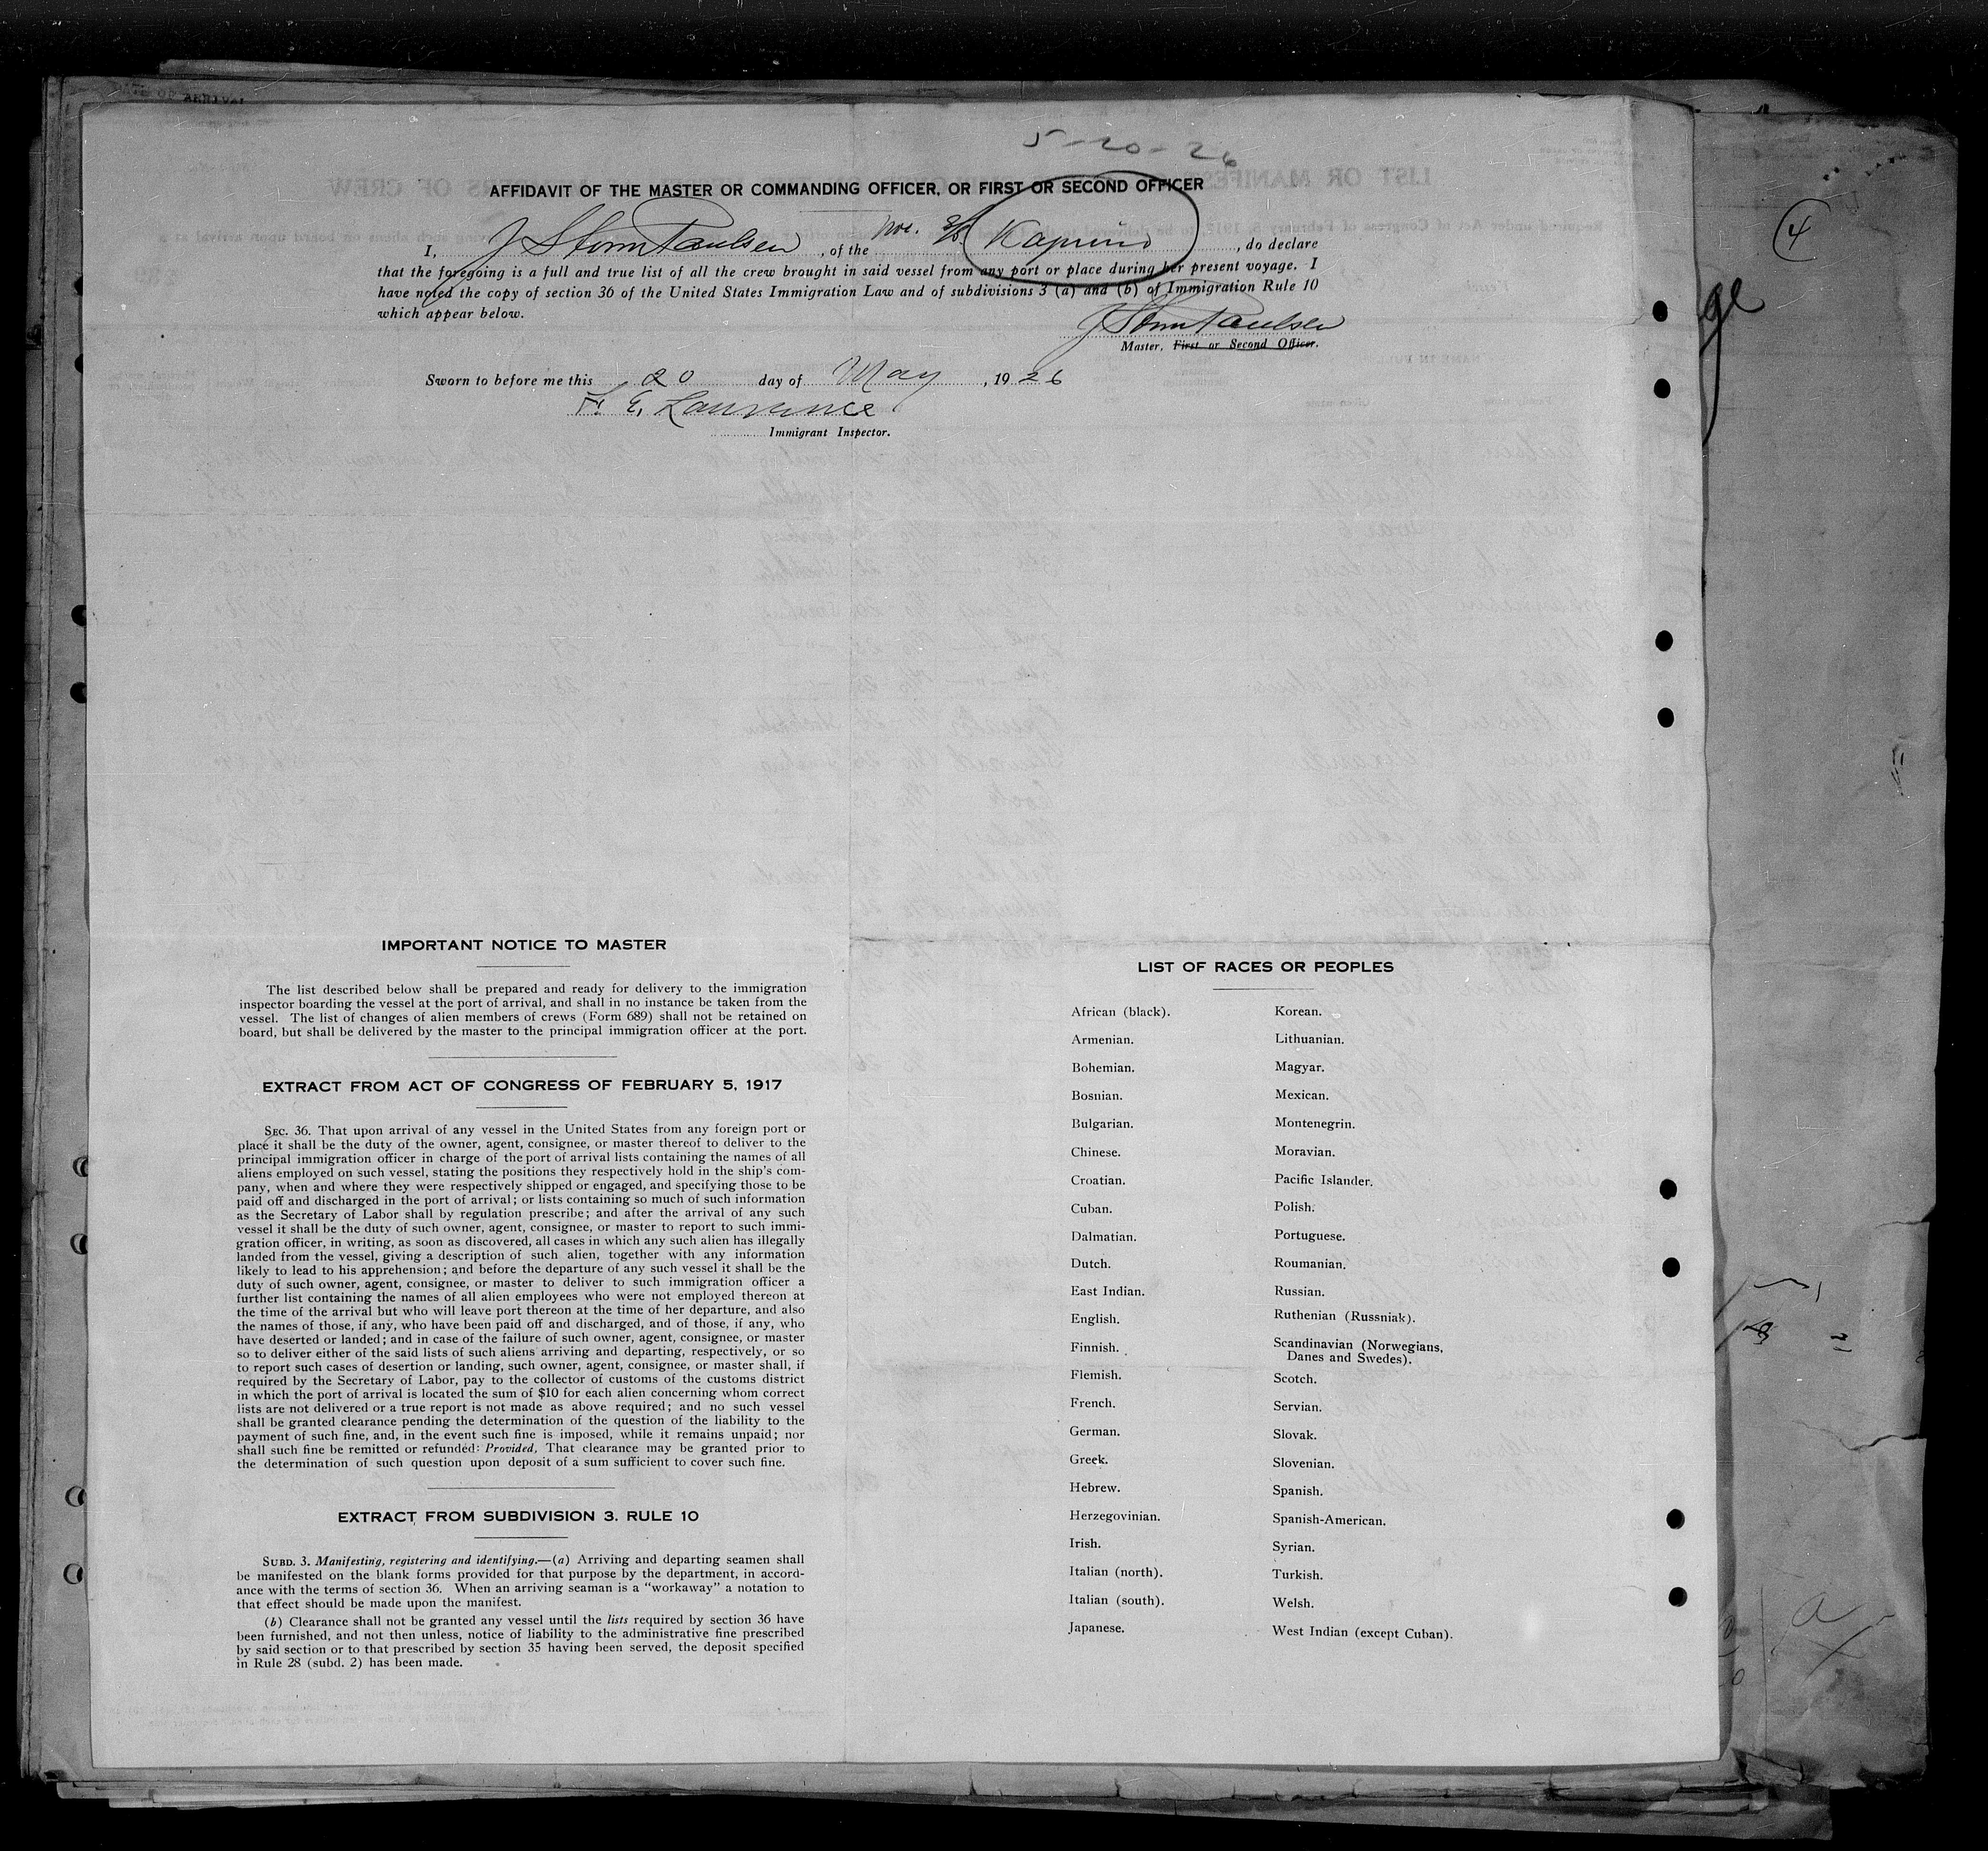 5-20-26
AFFIDAVIT OF THE MASTER OR COMMANDING OFFICER, OR FIRST OR SECOND OFFICER
I, J Storm Paulsen, of the Nor. S/S. Kaprino, do declare
that the foregoing is a full and true list of all the crew brought in said vessel from any port or place during her present voyage. I
have noted the copy of section 36 of the United States Immigration Law and of subdivisions 3 (a) and (b) of Immigration Rule 10
which appear below.
J Storm Paulsen
Master, First or Second Officer.
Sworn to before me this 20 day of May, 1926
F. E. Lawrence
Immigrant Inspector.
4
IMPORTANT NOTICE TO MASTER
The list described below shall be prepared and ready for delivery to the immigration
inspector boarding the vessel at the port of arrival, and shall in no instance be taken from the
vessel. The list of changes of alien members of crews (Form 689) shall not be retained on
board, but shall be delivered by the master to the principal immigration officer at the port.
EXTRACT FROM ACT OF CONGRESS OF FEBRUARY 5, 1917
SEC. 36. That upon arrival of any vessel in the United States from any foreign port or
place it shall be the duty of the owner, agent, consignee, or master thereof to deliver to the
principal immigration officer in charge of the port of arrival lists containing the names of all
aliens employed on such vessel, stating the positions they respectively hold in the ship's com-
pany, when and where they were respectively shipped or engaged, and specifying those to be
paid off and discharged in the port of arrival; or lists containing so much of such information
as the Secretary of Labor shall by regulation prescribe; and after the arrival of any such
vessel it shall be the duty of such owner, agent, consignee, or master to report to such immi-
gration officer, in writing, as soon as discovered, all cases in which any such alien has illegally
landed from the vessel, giving a description of such alien, together with any information
likely to lead to his apprehension; and before the departure of any such vessel it shall be the
duty of such owner, agent, consignee, or master to deliver to such immigration officer a
further list containing the names of all alien employees who were not employed thereon at
the time of the arrival but who will leave port thereon at the time of her departure, and also
the names of those, if any, who have been paid off and discharged, and of those, if any, who
have deserted or landed; and in case of the failure of such owner, agent, consignee, or master
so to deliver either of the said lists of such aliens arriving and departing, respectively, or so
to report such cases of desertion or landing, such owner, agent, consignee, or master shall, if
required by the Secretary of Labor, pay to the collector of customs of the customs district
in which the port of arrival is located the sum of $10 for each alien concerning whom correct
lists are not delivered or a true report is not made as above required; and no such vessel
shall be granted clearance pending the determination of the question of the liability to the
payment of such fine, and, in the event such fine is imposed, while it remains unpaid; nor
shall such fine be remitted or refunded: Provided, That clearance may be granted prior to
the determination of such question upon deposit of a sum sufficient to cover such fine.
EXTRACT FROM SUBDIVISION 3, RULE 10
SUBD. 3. Manifesting, registering and identifying.—(a) Arriving and departing seamen shall
be manifested on the blank forms provided for that purpose by the department, in accord-
ance with the terms of section 36. When an arriving seaman is a "workaway" a notation to
that effect should be made upon the manifest.
(b) Clearance shall not be granted any vessel until the lists required by section 36 have
been furnished, and not then unless, notice of liability to the administrative fine prescribed
by said section or to that prescribed by section 35 having been served, the deposit specified
in Rule 28 (subd. 2) has been made.
LIST OF RACES OR PEOPLES
African (black).
Armenian.
Bohemian.
Bosnian.
Bulgarian.
Chinese.
Croatian.
Cuban.
Dalmatian.
Dutch.
East Indian.
English.
Finnish.
Flemish.
French.
German.
Greek.
Hebrew.
Herzegovinian.
Irish.
Italian (north).
Italian (south).
Japanese.
Korean.
Lithuanian.
Magyar.
Mexican.
Montenegrin.
Moravian.
Pacific Islander.
Polish.
Portuguese.
Roumanian.
Russian.
Ruthenian (Russniak).
Scandinavian (Norwegians,
Danes and Swedes).
Scotch.
Servian.
Slovak.
Slovenian.
Spanish.
Spanish-American.
Syrian.
Turkish.
Welsh.
West Indian (except Cuban).